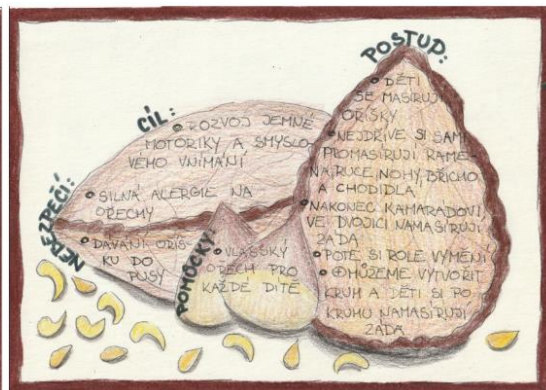 CÍL:
• ROZVOJ JEMNÉ
MOTORIKY A SMYSLO-
VÉHO VNÍMÁNÍ
NEBEZPEČÍ:
• SILNÁ ALERGIE NA
OŘECHY
• DÁVÁNÍ OŘÍŠ-
KU DO
PUSY
POMŮCKY:
• VLAŠSKÝ
OŘECH PRO
KAŽDÉ DÍTĚ
POSTUP:
• DĚTI
SE MASÍRUJÍ
OŘÍŠKY
• NEJDŘÍVE SI SAMI
PROMASÍRUJÍ RAME-
NA, RUCE, NOHY, BŘICHO
A CHODIDLA
• NAKONEC KAMARÁDOVI,
VE DVOJICI NAMASÍRUJÍ
ZÁDA
• POTÉ SI ROLE VYMĚNÍ
• MŮŽEME VYTVOŘIT
KRUH A DĚTI SI PO
KRUHU NAMASÍRUJÍ
ZÁDA